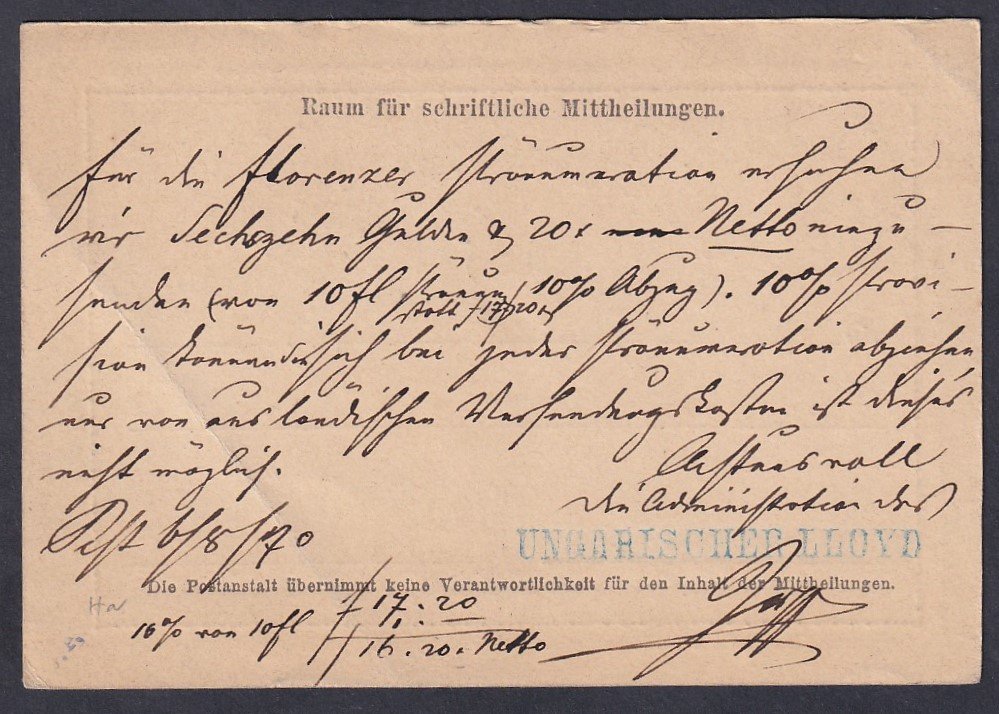 Raum für schriftliche Mittheilungen.
Für die Florenzer Pränumeration ersuchen
wir Sechszehn Gulden & 20x Netto einzu-
senden (von 10 fl Pränum 10% Abzug). 10% Provi-
statt f 17, 20x
sion können Sie sich bei jeder Pränumeration abziehen
nur von ausländischen Versendungskosten ist dieses
nicht möglich.
Achtungsvoll
Die Administration des
Pest 6/8/70
UNGARISCHER LLOYD
Die Postanstalt übernimmt keine Verantwortlichkeit für den Inhalt der Mittheilungen.
f 17. 20
10% von 10 fl
f 16. 20. Netto